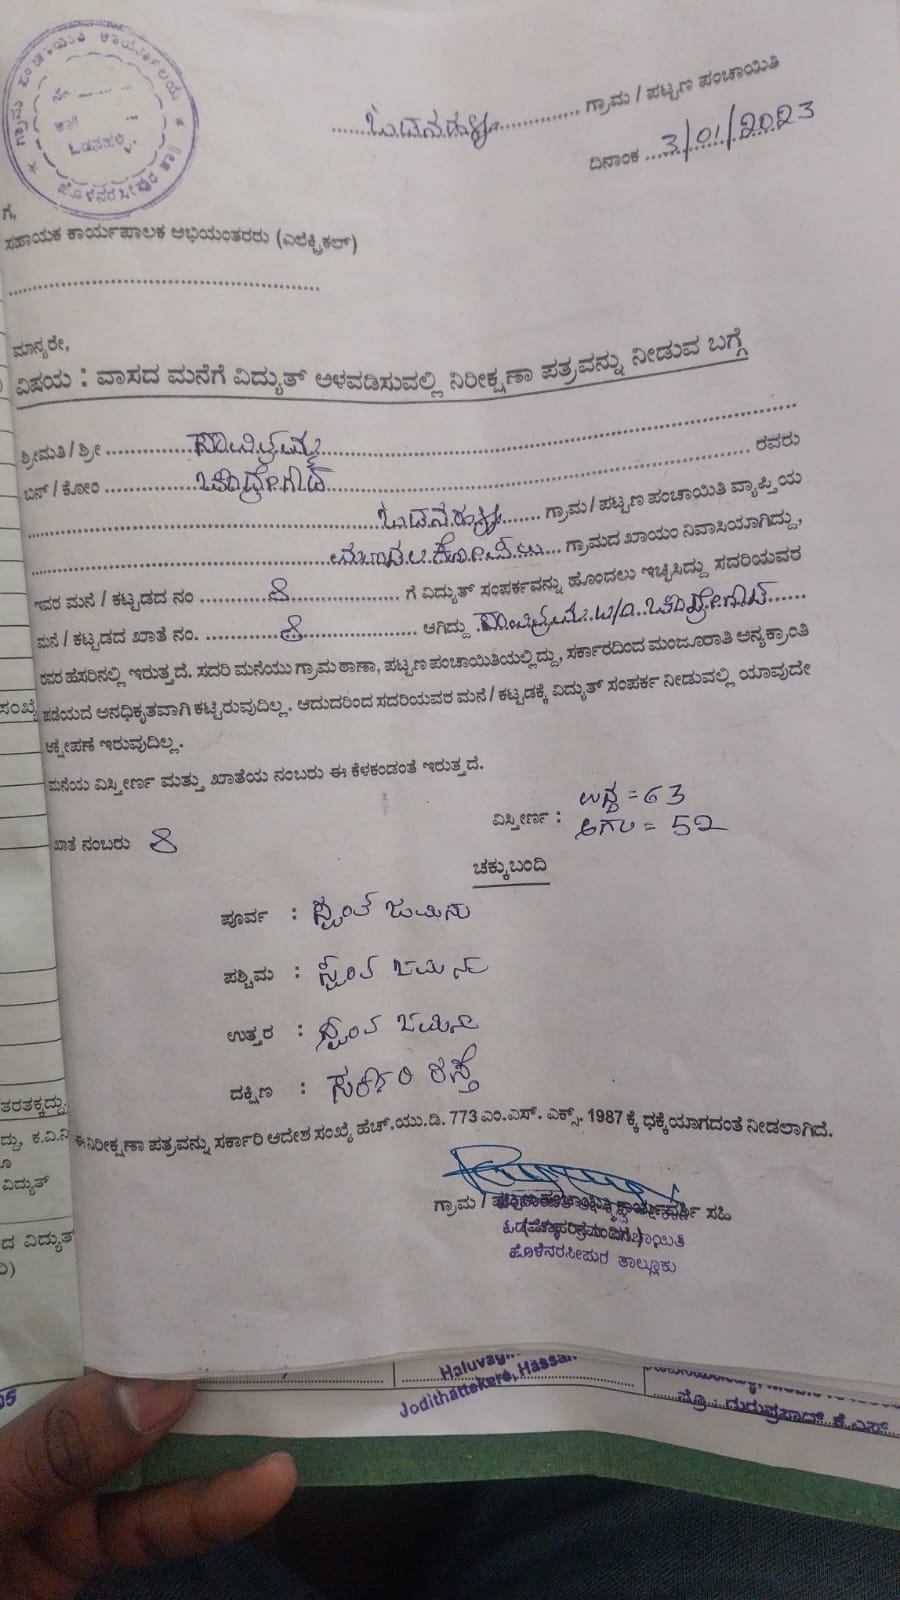 ಗ್ರಾಮ ಪಂಚಾಯಿತಿ ಕಾರ್ಯಾಲಯ
ಒಡನಹಳ್ಳಿ
ಹೊಳೆನರಸೀಪುರ
ಒಡನಹಳ್ಳಿ ಗ್ರಾಮ / ಪಟ್ಟಣ ಪಂಚಾಯಿತಿ
ದಿನಾಂಕ 3/01/2023
ಗೆ,
ಸಹಾಯಕ ಕಾರ್ಯಪಾಲಕ ಅಭಿಯಂತರರು (ಎಲೆಕ್ಟ್ರಿಕಲ್)
ಮಾನ್ಯರೇ,
ವಿಷಯ : ವಾಸದ ಮನೆಗೆ ವಿದ್ಯುತ್ ಅಳವಡಿಸುವಲ್ಲಿ ನಿರೀಕ್ಷಣಾ ಪತ್ರವನ್ನು ನೀಡುವ ಬಗ್ಗೆ
ಶ್ರೀಮತಿ / ಶ್ರೀ ಸಾವಿತ್ರಮ್ಮ
ಬಿನ್ / ಕೋಂ ಚಂದ್ರೇಗೌಡ ರವರು
ಒಡನಹಳ್ಳಿ ಗ್ರಾಮ / ಪಟ್ಟಣ ಪಂಚಾಯಿತಿ ವ್ಯಾಪ್ತಿಯ
ಗ್ರಾಮದ ಖಾಯಂ ನಿವಾಸಿಯಾಗಿದ್ದು,
ಇವರ ಮನೆ / ಕಟ್ಟಡದ ನಂ 8 ಗೆ ವಿದ್ಯುತ್ ಸಂಪರ್ಕವನ್ನು ಹೊಂದಲು ಇಚ್ಛಿಸಿದ್ದು ಸದರಿಯವರ
ಮನೆ / ಕಟ್ಟಡದ ಖಾತೆ ನಂ. 8 ಆಗಿದ್ದು ಸಾವಿತ್ರಮ್ಮ W/O ಚಂದ್ರೇಗೌಡ
ರವರ ಹೆಸರಿನಲ್ಲಿ ಇರುತ್ತದೆ. ಸದರಿ ಮನೆಯು ಗ್ರಾಮ ಠಾಣಾ, ಪಟ್ಟಣ ಪಂಚಾಯಿತಿಯಲ್ಲಿದ್ದು, ಸರ್ಕಾರದಿಂದ ಮಂಜೂರಾತಿ ಅನ್ಯಕ್ರಾಂತಿ
ಪಡೆಯದೆ ಅನಧಿಕೃತವಾಗಿ ಕಟ್ಟಿರುವುದಿಲ್ಲ. ಆದುದರಿಂದ ಸದರಿಯವರ ಮನೆ / ಕಟ್ಟಡಕ್ಕೆ ವಿದ್ಯುತ್ ಸಂಪರ್ಕ ನೀಡುವಲ್ಲಿ ಯಾವುದೇ
ಆಕ್ಷೇಪಣೆ ಇರುವುದಿಲ್ಲ.
ಮನೆಯ ವಿಸ್ತೀರ್ಣ ಮತ್ತು ಖಾತೆಯ ನಂಬರು ಈ ಕೆಳಕಂಡಂತೆ ಇರುತ್ತದೆ.
ಖಾತೆ ನಂಬರು 8
ವಿಸ್ತೀರ್ಣ : ಉದ್ದ = 63
ಅಗಲ = 52
ಚಕ್ಕುಬಂದಿ
ಪೂರ್ವ : ಸ್ವಂತ ಜಮೀನು
ಪಶ್ಚಿಮ : ಸ್ವಂತ ಜಮೀನು
ಉತ್ತರ : ಸ್ವಂತ ಜಮೀನು
ದಕ್ಷಿಣ : ಸರ್ಕಾರಿ ರಸ್ತೆ
ಈ ನಿರೀಕ್ಷಣಾ ಪತ್ರವನ್ನು ಸರ್ಕಾರಿ ಆದೇಶ ಸಂಖ್ಯೆ ಹೆಚ್.ಯು.ಡಿ. 773 ಎಂ.ಎಸ್. ಎಕ್ಸ್. 1987 ಕ್ಕೆ ಧಕ್ಕೆಯಾಗದಂತೆ ನೀಡಲಾಗಿದೆ.
ಗ್ರಾಮ / ಪಟ್ಟಣ ಪಂಚಾಯಿತಿ ಕಾರ್ಯದರ್ಶಿ ಸಹಿ
(ಮೊಹರಿನೊಂದಿಗೆ)
ಹೊಳೆನರಸೀಪುರ ತಾಲ್ಲೂಕು
ಸಂಖ್ಯೆ
ತರತಕ್ಕದ್ದು.
ದ್ದು, ಕ.ವಿ.ನಿ
ವಿದ್ಯುತ್
ದ ವಿದ್ಯುತ್
Jodithattekere, Hassan
ಪ್ರೊ : ಗುರುಪ್ರಸಾದ್ ಕೆ.ಎಸ್.